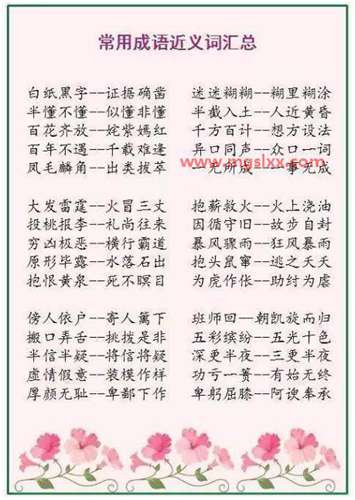 常用成语近义词汇总
白纸黑字--证据确凿 迷迷糊糊--糊里糊涂
半懂不懂--似懂非懂 半截入土--人近黄昏
百花齐放--姹紫嫣红 千方百计--想方设法
百年不遇--千载难逢 异口同声--众口一词
凤毛麟角--出类拔萃 一无所成--一事无成
www.mgslxx.com
大发雷霆--火冒三丈 抱薪救火--火上浇油
投桃报李--礼尚往来 因循守旧--故步自封
穷凶极恶--横行霸道 暴风骤雨--狂风暴雨
原形毕露--水落石出 抱头鼠窜--逃之夭夭
抱恨黄泉--死不瞑目 为虎作伥--助纣为虐
傍人依户--寄人篱下 班师回--朝凯旋而归
搬口弄舌--挑拨是非 五彩缤纷--五光十色
半信半疑--将信将疑 深更半夜--三更半夜
虚情假意--装模作样 功亏一篑--有始无终
厚颜无耻--卑鄙下作 卑躬屈膝--阿谀奉承